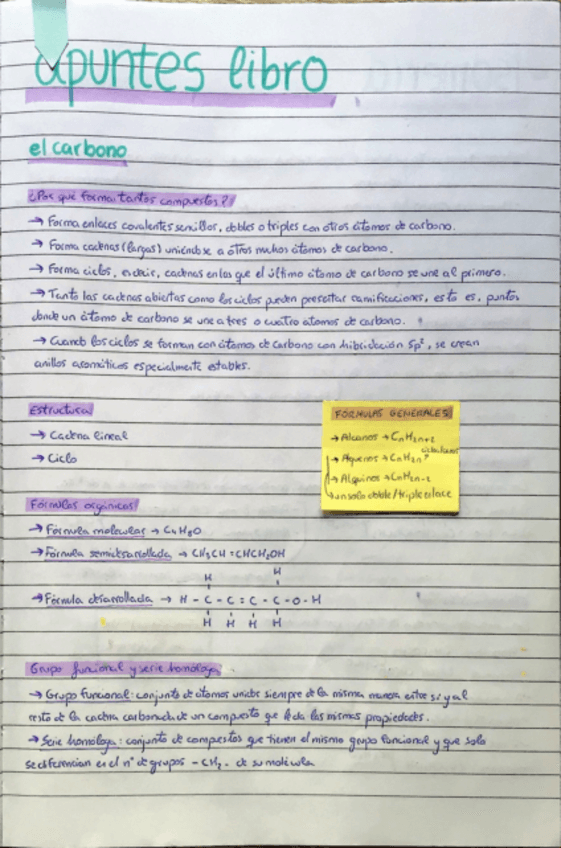 apuntes libro
el carbono
¿Por qué forma tantos compuestos?
→ Forma enlaces covalentes sencillos, dobles o triples con otros átomos de carbono.
→ Forma cadenas (largas) uniéndose a otros muchos átomos de carbono.
→ Forma ciclos, es decir, cadenas en las que el último átomo de carbono se une al primero.
→ Tanto las cadenas abiertas como los ciclos pueden presentar ramificaciones, esto es, puntos
donde un átomo de carbono se une a tres o cuatro átomos de carbono.
→ Cuando los ciclos se forman con átomos de carbono con hibridación sp², se crean
anillos aromáticos especialmente estables.
Estructura
→ Cadena lineal
→ Ciclo
FÓRMULAS GENERALES
→ Alcanos → CnH2n+2
→ Alquenos → CnH2n
→ Alquinos → CnH2n-2
un solo doble/triple enlace
Fórmulas orgánicas
→ Fórmula molecular → C4H8O
→ Fórmula semidesarrollada → CH3CH=CHCH2OH
H H
→ Fórmula desarrollada → H - C - C = C - C - O - H
H H H H
Grupo funcional y serie homóloga
→ Grupo funcional: conjunto de átomos unidos siempre de la misma manera entre sí y al
resto de la cadena carbonada de un compuesto que le da las mismas propiedades.
→ Serie homóloga: conjunto de compuestos que tienen el mismo grupo funcional y que solo
se diferencian en el nº de grupos -CH2- de su molécula